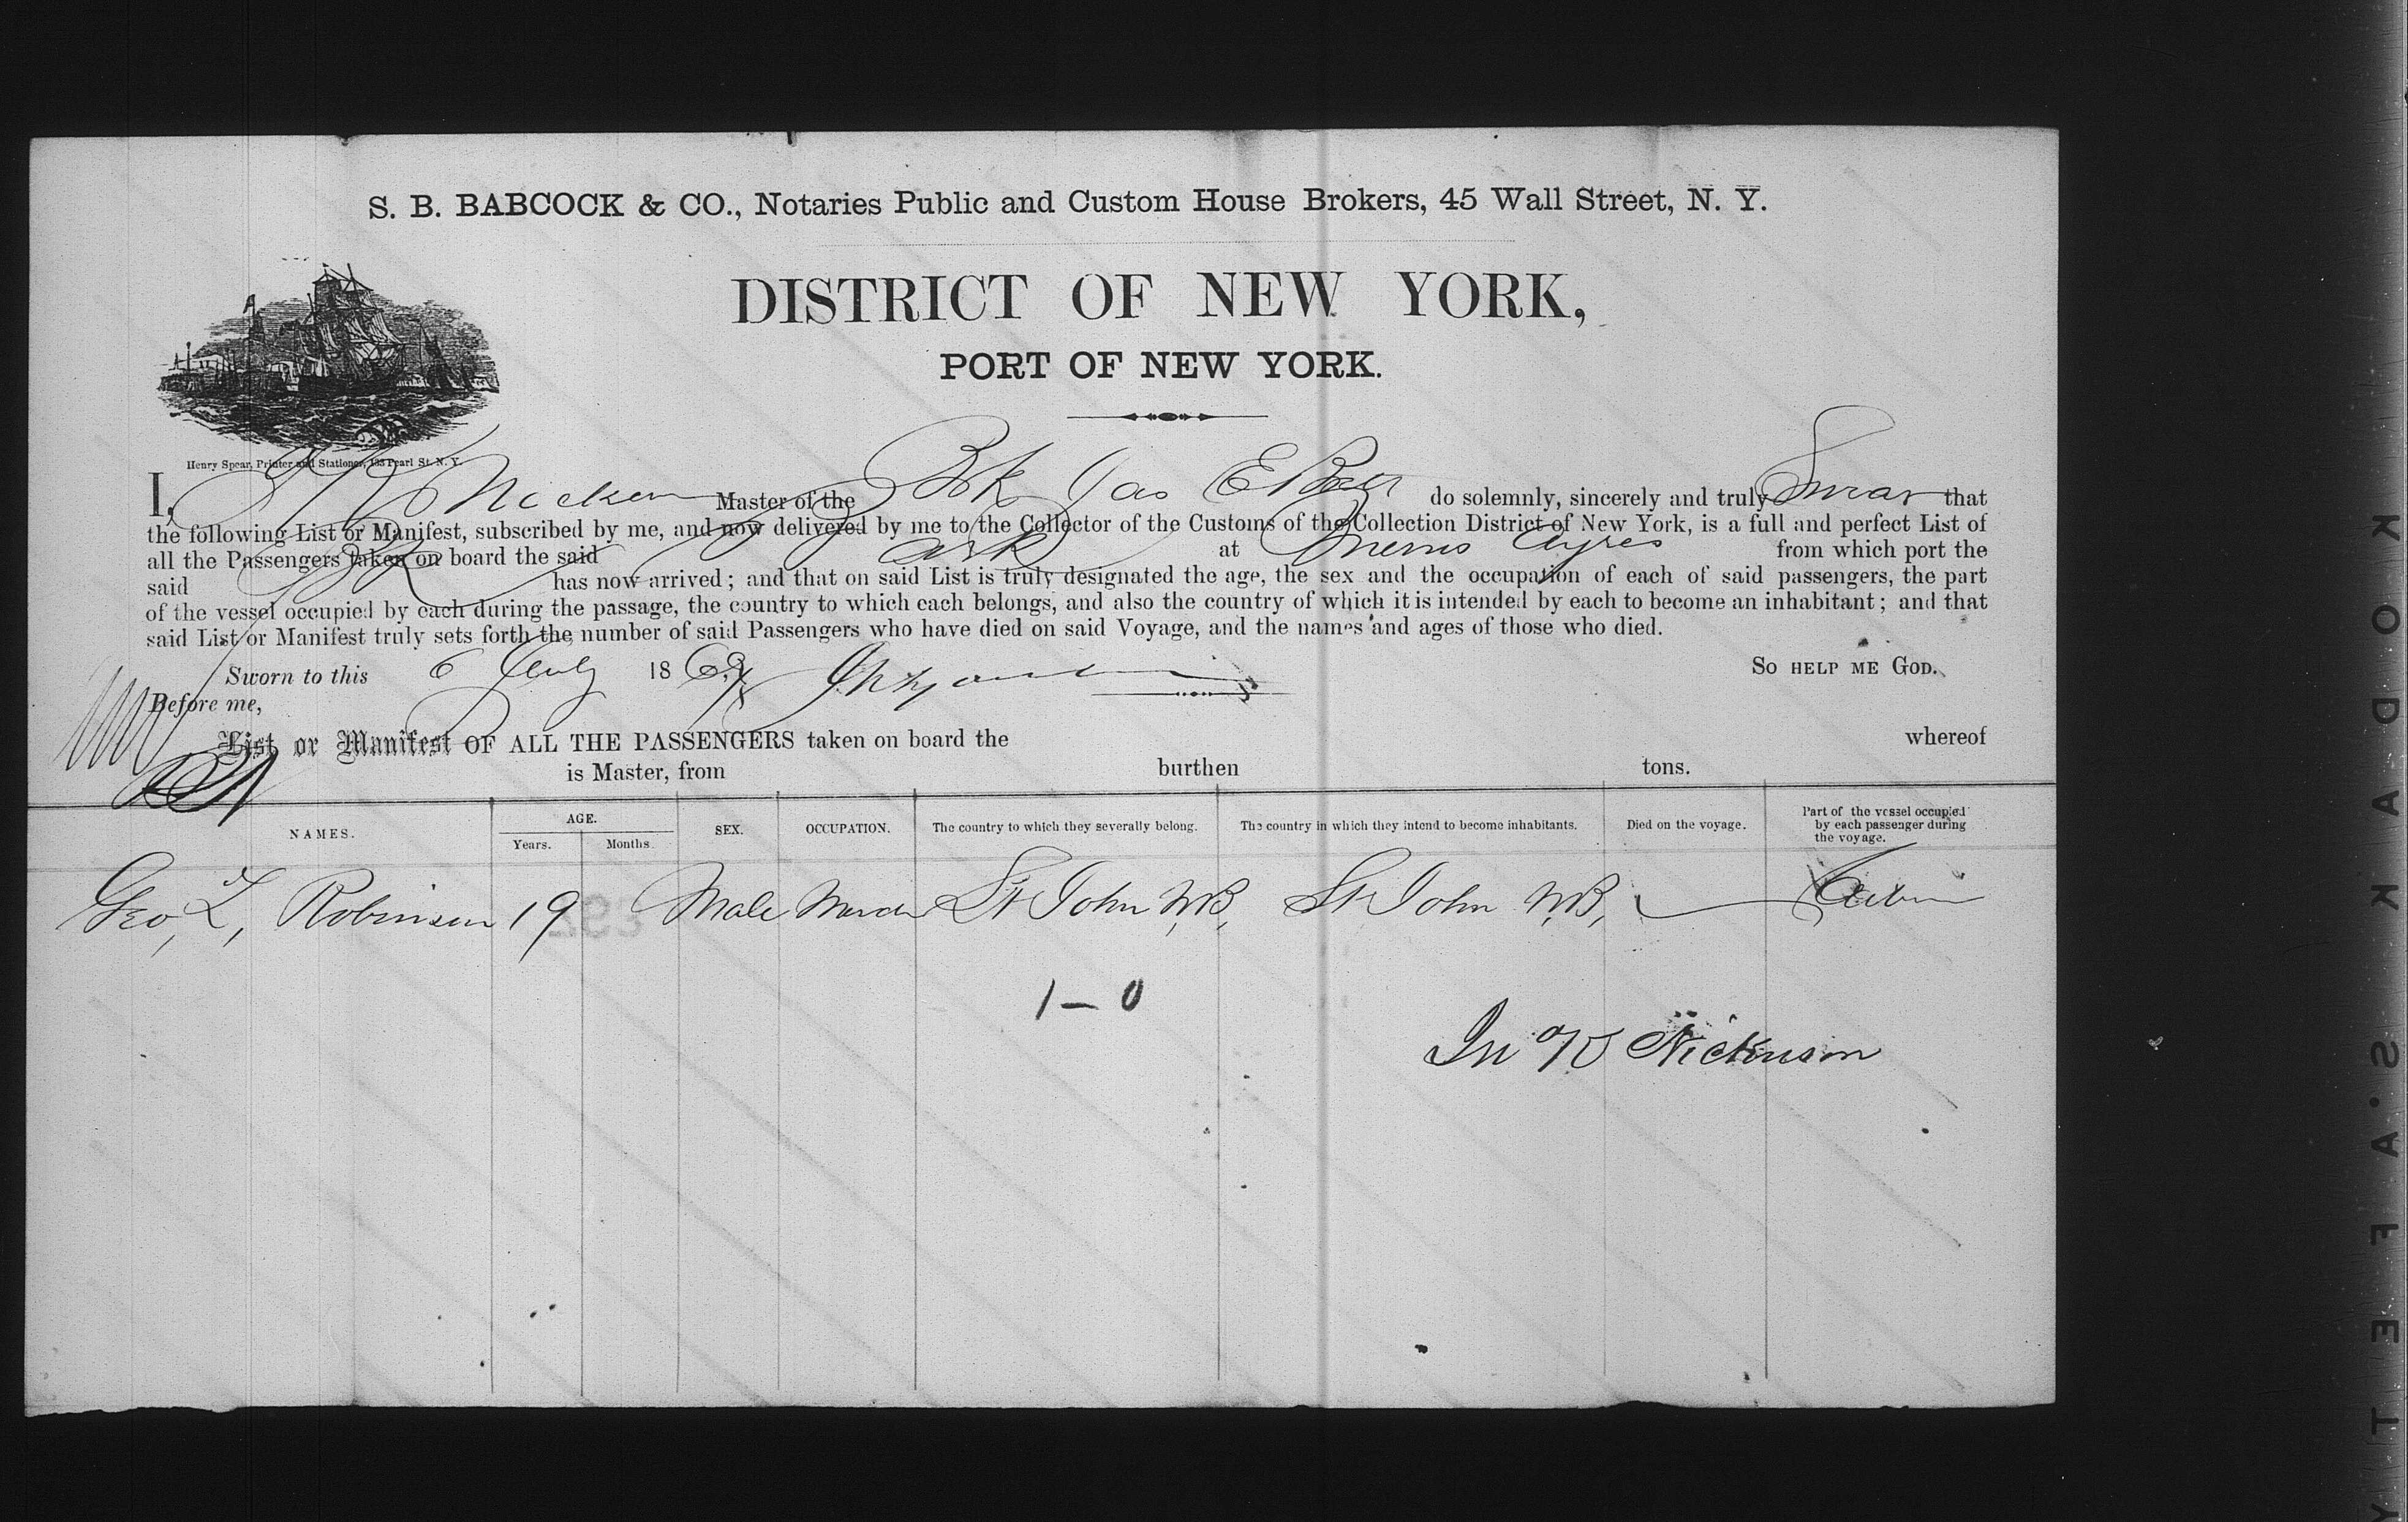 S. B. BABCOCK & CO., Notaries Public and Custom House Brokers, 45 Wall Street, N. Y.
DISTRICT OF NEW YORK,
PORT OF NEW YORK.
Henry Spear, Printer and Stationer, 133 Pearl St. N. Y.
I, Master of the Bk Jas E do solemnly, sincerely and truly Swear that
the following List or Manifest, subscribed by me, and now delivered by me to the Collector of the Customs of the Collection District of New York, is a full and perfect List of
all the Passengers taken on board the said Bark at Buenos Ayres from which port the
said has now arrived; and that on said List is truly designated the age, the sex and the occupation of each of said passengers, the part
of the vessel occupied by each during the passage, the country to which each belongs, and also the country of which it is intended by each to become an inhabitant; and that
said List or Manifest truly sets forth the number of said Passengers who have died on said Voyage, and the names and ages of those who died.
Sworn to this 6 July 1869 SO HELP ME GOD.
Before me,
List or Manifest OF ALL THE PASSENGERS taken on board the whereof
is Master, from burthen tons.
NAMES. AGE. Years. Months. SEX. OCCUPATION. The country to which they severally belong. The country in which they intend to become inhabitants. Died on the voyage. Part of the vessel occupied by each passenger during the voyage.
Geo, L, Robinson 19 Male St John N,B, St John N,B, Cabin
1 – 0
Nickerson
KODAK S.AFETY